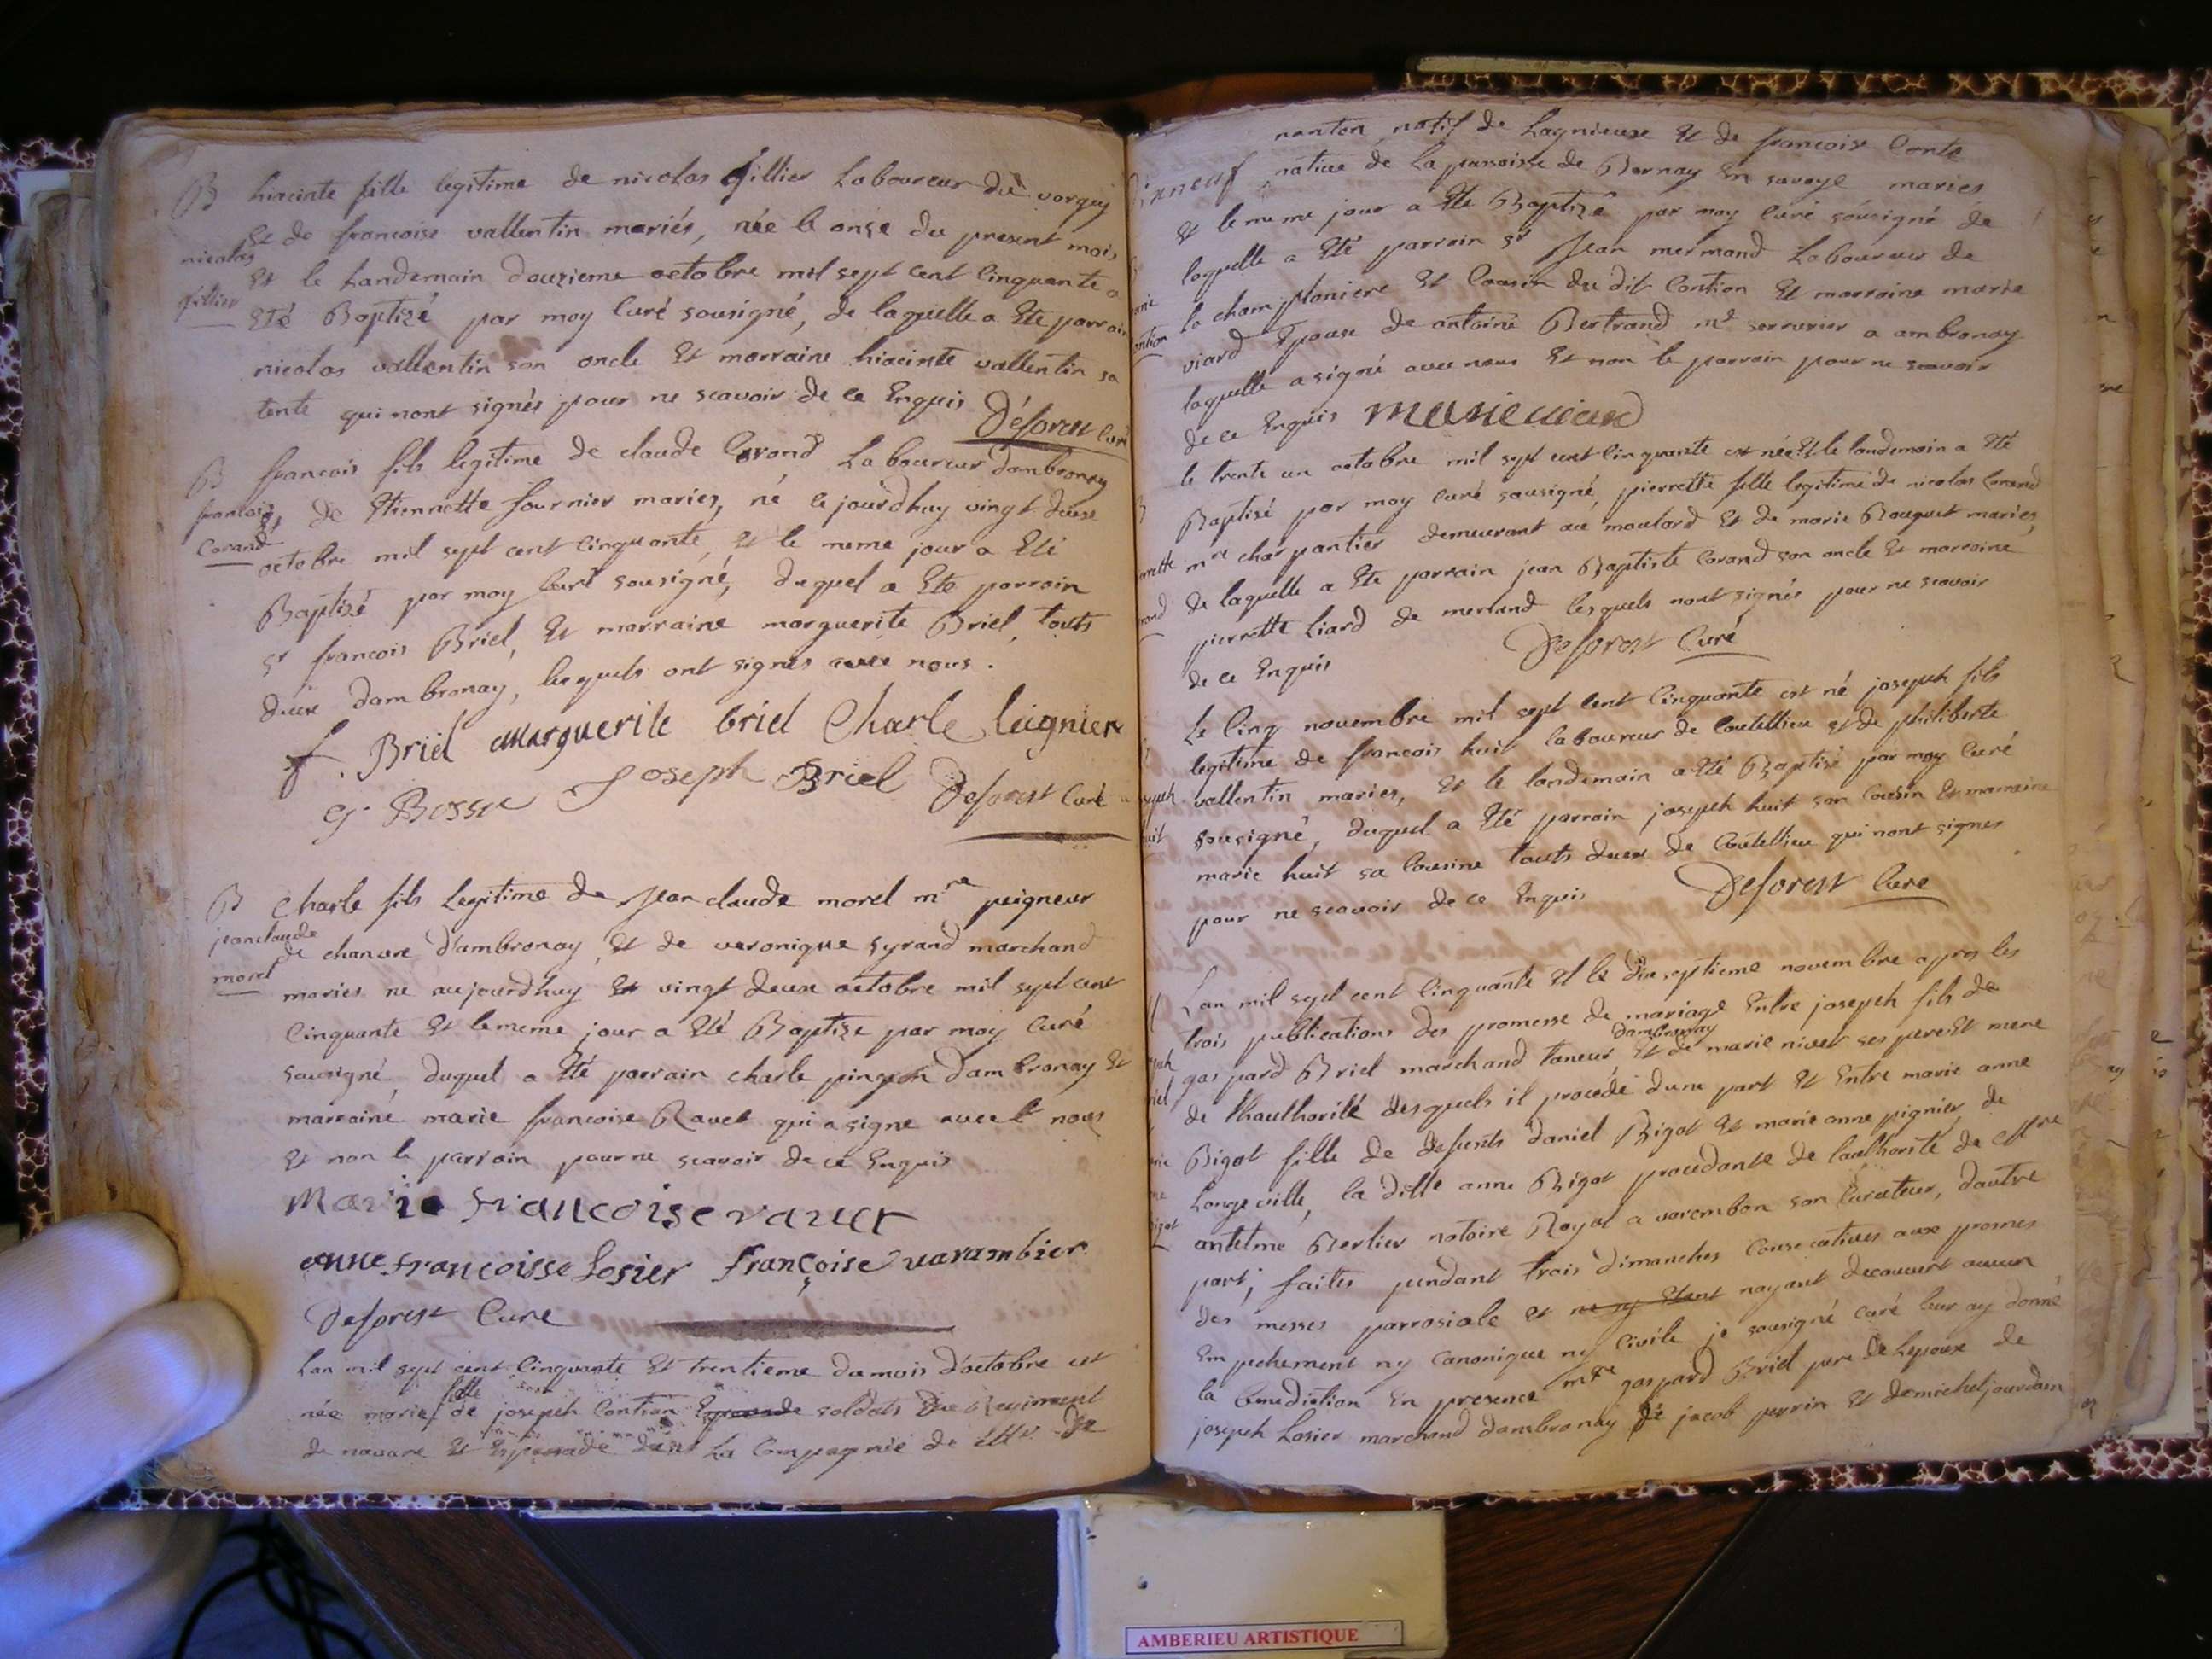 B hiacinte fille legitime de nicolas fillier Laboureur du vorgey
nicolas
Et de francoise vallentin mariés, née le onze du present mois
fillier
Et le Landemain douzieme octobre mil sept cent Cinquante a
Eté Baptizé par moy Curé sousigné, de laquelle a Ete parrain
nicolas vallentin son oncle Et marraine hiacinte vallentin sa
tente qui nont signés pour ne scavoir de ce Enquis Deforest Curé
B francois fils legitime de claude Corand Laboureur dambronay
francois
Corand
Et de Etiennette fournier mariez, né cejourdhuy vingt deux
octobre mil sept cent Cinquante, Et le meme jour a Eté
Baptizé par moy Curé sousigné, duquel a Ete parrain
sr francois Briel, Et marraine marguerite Briel touts
deux dambronay, lesquels ont signés avec nous.
f. Briel Marguerite briel Charle leignier
Joseph Briel Deforest Curé
B Charle fils Legitime de Jean claude morel mre peigneur
jeanclaude
morel
de chanvre d'ambronay, Et de veronique syrand marchand
mariés né aujourdhuy Et vingt deux octobre mil sept cent
Cinquante Et lememe jour a Eté Baptize par moy Curé
sousigné, duquel a Eté parrain charle pingeon dambronay Et
marraine marie francoise Ravet qui a signe avec nous
Et non le parrain pour ne scavoir de ce Enquis
Marie francoise ravet
anne francoisse Losier françoise varambier
Deforest Cure
Lan mil sept cent Cinquante Et trentieme du mois d'octobre est
née marie fille de joseph Contion soldats Du Regiment
de navare Et dans La Compagnie de
nanton natif de Lagnieux Et de francoise Conte
native de La paroisse de Bornay En savoye mariés
Et lememe jour a Ete Baptizé par moy Curé sousigné de
laquelle a Eté parrain sr Jean mermand Laboureur de
La champlaniere Et Cousin du dit Contion Et marraine marie
viard Epouse de antoine Bertrand md serrurier a ambronay
laquelle a signé avec nous Et non le parrain pour ne scavoir
de ce Enquis marie viard
le trente un octobre mil sept cent Cinquante est née Et le landemain a Eté
Baptisé par moy Curé sousigné, pierrette fille legitime de nicolas Corand
mre charpantier demeurant au moulard Et de marie Bouquet mariés,
de laquelle a Ete parrain jean Baptiste Corand son oncle Et marraine
pierrette Liard de merland lesquels nont signés pour ne scavoir
de ce Enquis Deforest Curé
Le Cinq novembre mil sept cent Cinquante est né joseph fils
legitime de francois huit laboureur de Coutellieu et de philiberte
vallentin mariés, Et le landemain a Eté Baptisé par moy Curé
sousigné, duquel a Eté parrain joseph huit son Cousin Et marraine
marie huit sa Cousine touts deux de Coutellieu qui nont signes
pour ne scavoir de ce Enquis Deforest Cure
Lan mil sept cent Cinquante Et le dix septieme novembre apres les
trois publications des promesse de mariage Entre joseph fils de
gaspard Briel marchand taneur dambronay Et de marie nivet ses pere Et mere
de Lhauthorité desquels il procede dune part Et Entre marie anne
Bigot fille de defunts daniel Bigot Et marie anne pignier de
Longeville, la ditte anne Bigot procedante de lauthorité de Mtre
antelme Berlier notaire Royal a varembon son Curateur, dautre
part; faites pendant trois dimanches Consecutives aux prones
des messes parrosiale et ne ny Etant nayant decouvert aucun
Empechement ny Canonique ny Civile je sousigné curé leur ay donné
la benediction En presence mtre gaspard Briel pere de Lepoux de
joseph Losier marchand dambronay de jacob perrin Et de michel jourdain
AMBERIEU ARTISTIQUE